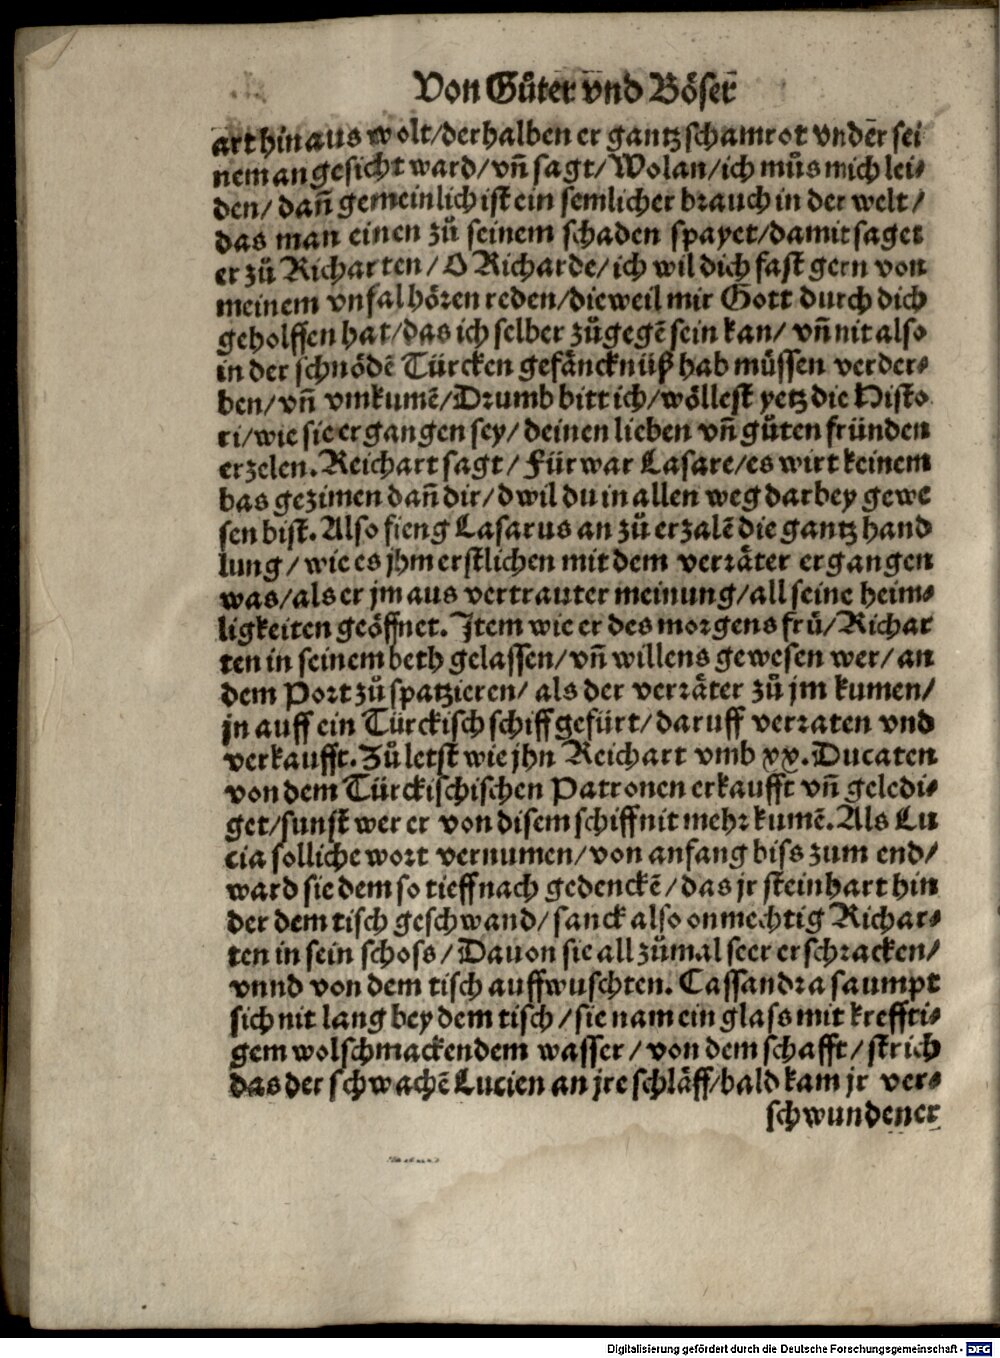 Von Gůter vnd Böser
art hinaus wolt/derhalben er gantz schamrot vnder sei
nem angesicht ward/vñ sagt/Wolan/ich můs mich lei⸗
den/dañ gemeinlich ist ein semlicher brauch in der welt/
das man einen zů seinem schaden spayet/damit saget
er zů Richarten/O Richarde/ich wil dich fast gern von
meinem vnfal hören reden/dieweil mir Gott durch dich
geholffen hat/das ich selber zůgegē sein kan/vñ nit also
in der schnödē Türcken gefäncknüß hab müssen verder⸗
ben/vñ vmkumē/Drumb bitt ich/wöllest yetz die Histo
ri/wie sie ergangen sey/deinen lieben vñ gůten fründen
erzelen. Reichart sagt/Fürwar Lasare/es wirt keinem
bas gezimen dañ dir/dwil du in allen weg darbey gewe
sen bist. Also fieng Lasarus an zů erzalē die gantz hand
lung/wie es jhm erstlichen mit dem verräter ergangen
was/als er jm aus vertrauter meinung/all seine heim⸗
ligkeiten geöffnet. Item wie er des morgens frü/Richar
ten in seinem beth gelassen/vñ willens gewesen wer/an
dem Port zů spatzieren/als der verräter zů jm kumen/
jn auff ein Türckisch schiff gefürt/daruff verraten vnd
verkaufft. Zů letst wie jhn Reichart vmb xx. Ducaten
von dem Türckischischen Patronen erkaufft vñ geledi⸗
get/sunst wer er von disem schiff nit mehr kumē. Als Lu
cia solliche wort vernumen/von anfang biss zum end/
ward sie dem so tieff nach gedenckē/das jr steinhart hin
der dem tisch geschwand/sanck also onmechtig Richar⸗
ten in sein schoss/Dauon sie all zůmal seer erschracken/
vnnd von dem tisch auffwuschten. Cassandra saumpt
sich nit lang bey dem tisch/sie nam ein glass mit kreffti⸗
gem wolschmackendem wasser/von dem schafft/strich
das der schwachē Lucien an jre schläff/bald kam jr ver⸗
schwundener
Digitalisierung gefördert durch die Deutsche Forschungsgemeinschaft - DFG